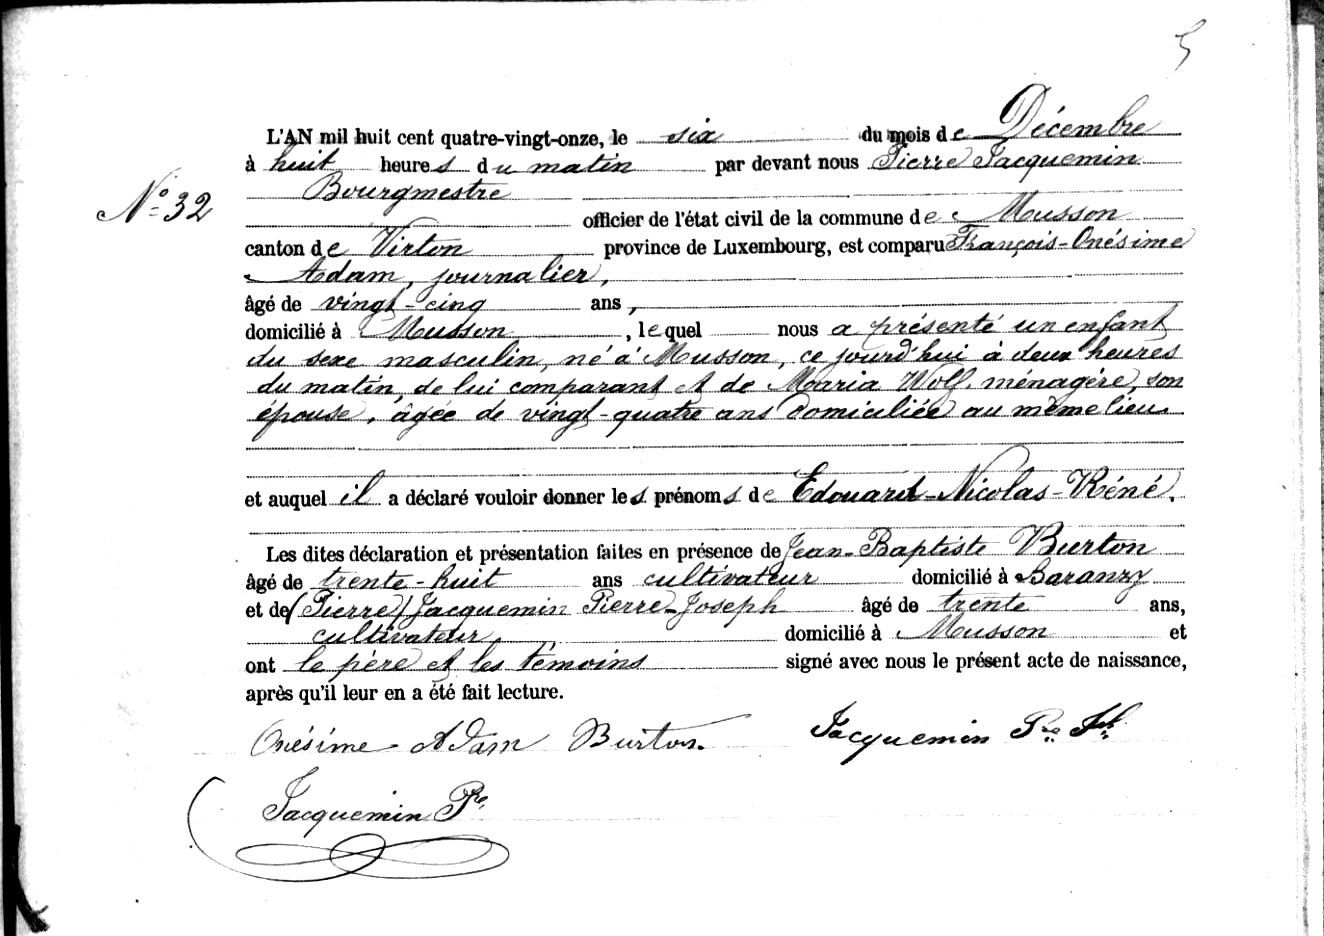 5
L'AN mil huit cent quatre-vingt-onze, le six du mois de Décembre
à huit heures du matin par devant nous Pierre Jacquemin
Bourgmestre
N° 32
officier de l'état civil de la commune de Musson
canton de Virton province de Luxembourg, est comparu François-Onésime
Adam, journalier,
âgé de vingt-cinq ans,
domicilié à Musson, lequel nous a présenté un enfant
du sexe masculin, né à Musson, ce jourd'hui à deux heures
du matin, de lui comparant et de Maria Wolf, ménagère, son
épouse, âgée de vingt-quatre ans domiciliée au même lieu
et auquel il a déclaré vouloir donner les prénoms de Edouard-Nicolas-Réné.
Les dites déclaration et présentation faites en présence de Jean-Baptiste Burton
âgé de trente-huit ans cultivateur domicilié à Baranzy
et de (Pierre) Jacquemin Pierre-Joseph âgé de trente ans,
cultivateur, domicilié à Musson et
ont le père et les témoins signé avec nous le présent acte de naissance,
après qu'il leur en a été fait lecture.
Onésime Adam Burton. Jacquemin Pre Jph
Jacquemin Pre